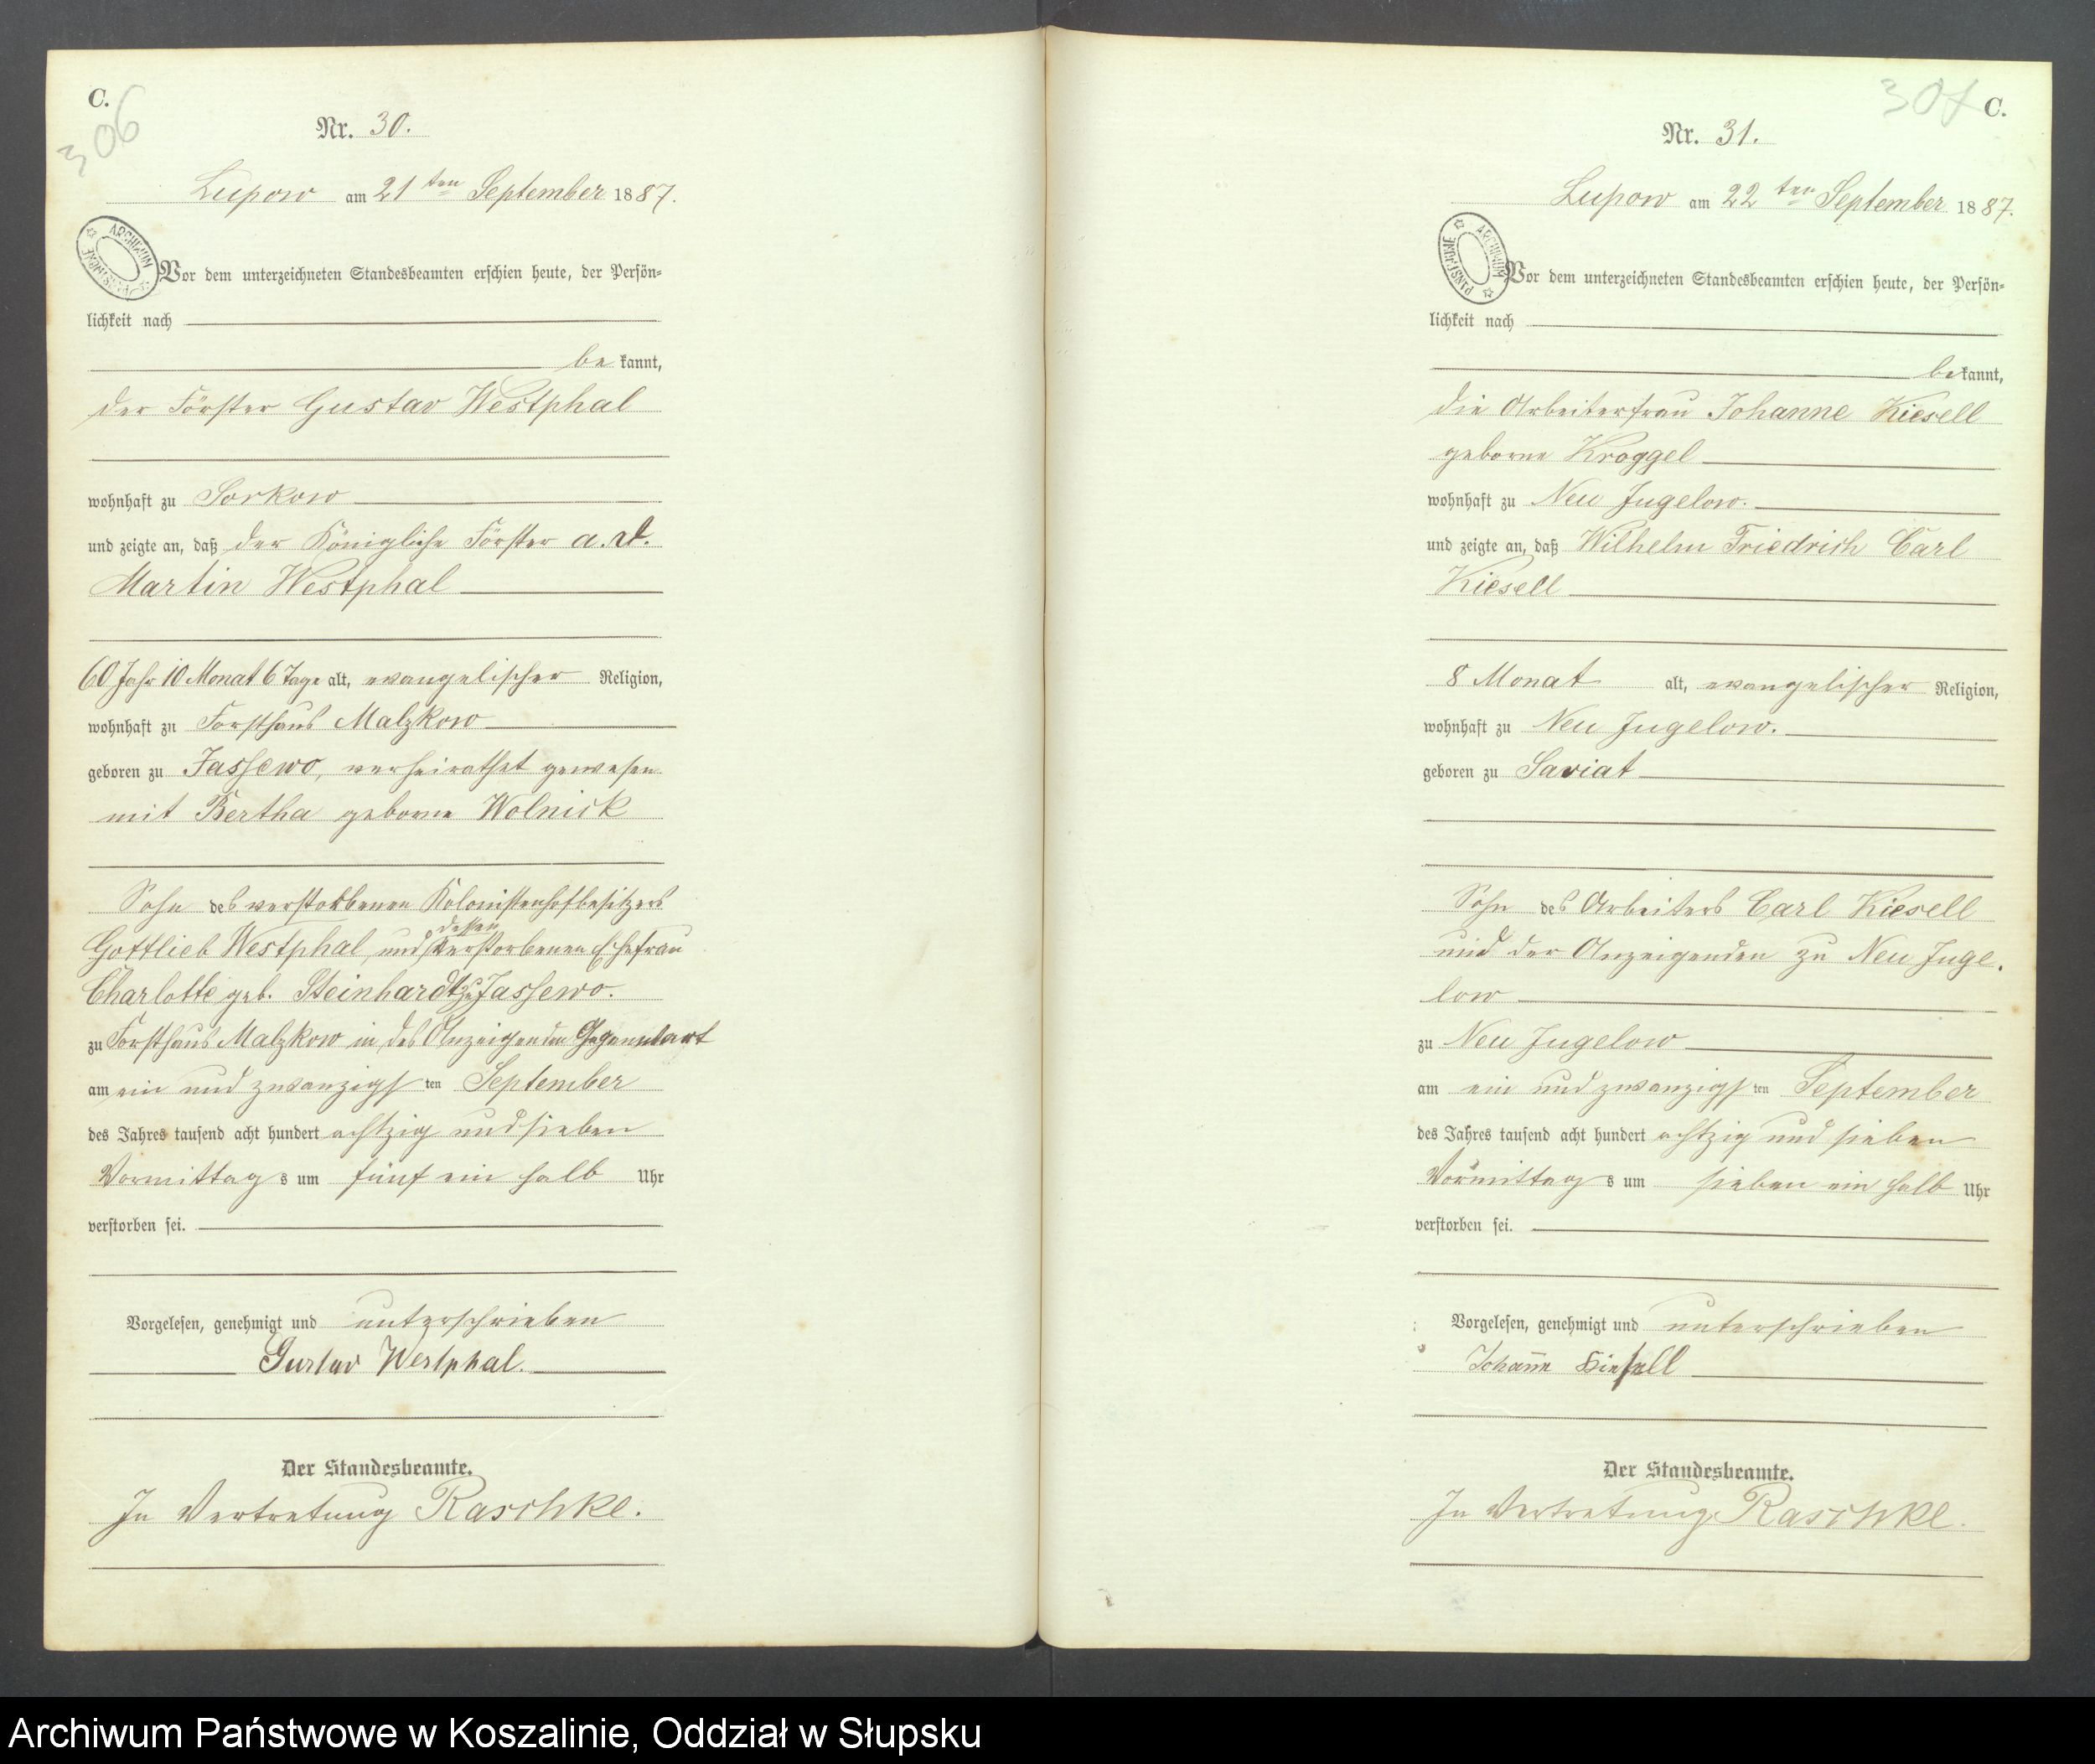 C.
306
Nr. 30.
Lupow am 21ten September 1887.
ARCHIWUM PAŃSTWOWE
Vor dem unterzeichneten Standesbeamten erschien heute, der Persön-
lichkeit nach
be kannt,
der Förster Gustav Westphal
wohnhaft zu Sorkow
und zeigte an, daß der Königliche Förster a. D.
Martin Westphal
60 Jahr 10 Monat 6 Tage alt, evangelischer Religion,
wohnhaft zu Forsthaus Malzkow
geboren zu Jassewo, verheirathet gewesen
mit Bertha geborne Wolnick
Sohn des verstorbenen Kolonistenhofbesitzers
dessen
Gottlieb Westphal, und verstorbenen Ehefrau
Charlotte geb. Steinhardt zu Jassewo.
zu Forsthaus Malzkow in des Anzeigenden Gegenwart
am ein und zwanzigsten September
des Jahres tausend acht hundert achtzig und sieben
Vormittags um fünf ein halb Uhr
verstorben sei.
Vorgelesen, genehmigt und unterschrieben
Gustav Westphal.
Der Standesbeamte.
In Vertretung Raschke.
C.
307
Nr. 31.
Lupow am 22ten September 1887.
ARCHIWUM PAŃSTWOWE
Vor dem unterzeichneten Standesbeamten erschien heute, der Persön-
lichkeit nach
bekannt,
die Arbeiterfrau Johanne Kiesell
geborne Kroggel
wohnhaft zu Neu Jugelow.
und zeigte an, daß Wilhelm Friedrich Carl
Kiesell
8 Monat alt, evangelischer Religion,
wohnhaft zu Neu Jugelow.
geboren zu Saviat
Sohn des Arbeiters Carl Kiesell
und der Anzeigenden zu Neu Juge-
low
zu Neu Jugelow
am ein und zwanzigsten September
des Jahres tausend acht hundert achtzig und sieben
Vormittags um sieben ein halb Uhr
verstorben sei.
Vorgelesen, genehmigt und unterschrieben
Johann̄e Kiesell
Der Standesbeamte.
In Vertretung Raschke.
Archiwum Państwowe w Koszalinie, Oddział w Słupsku